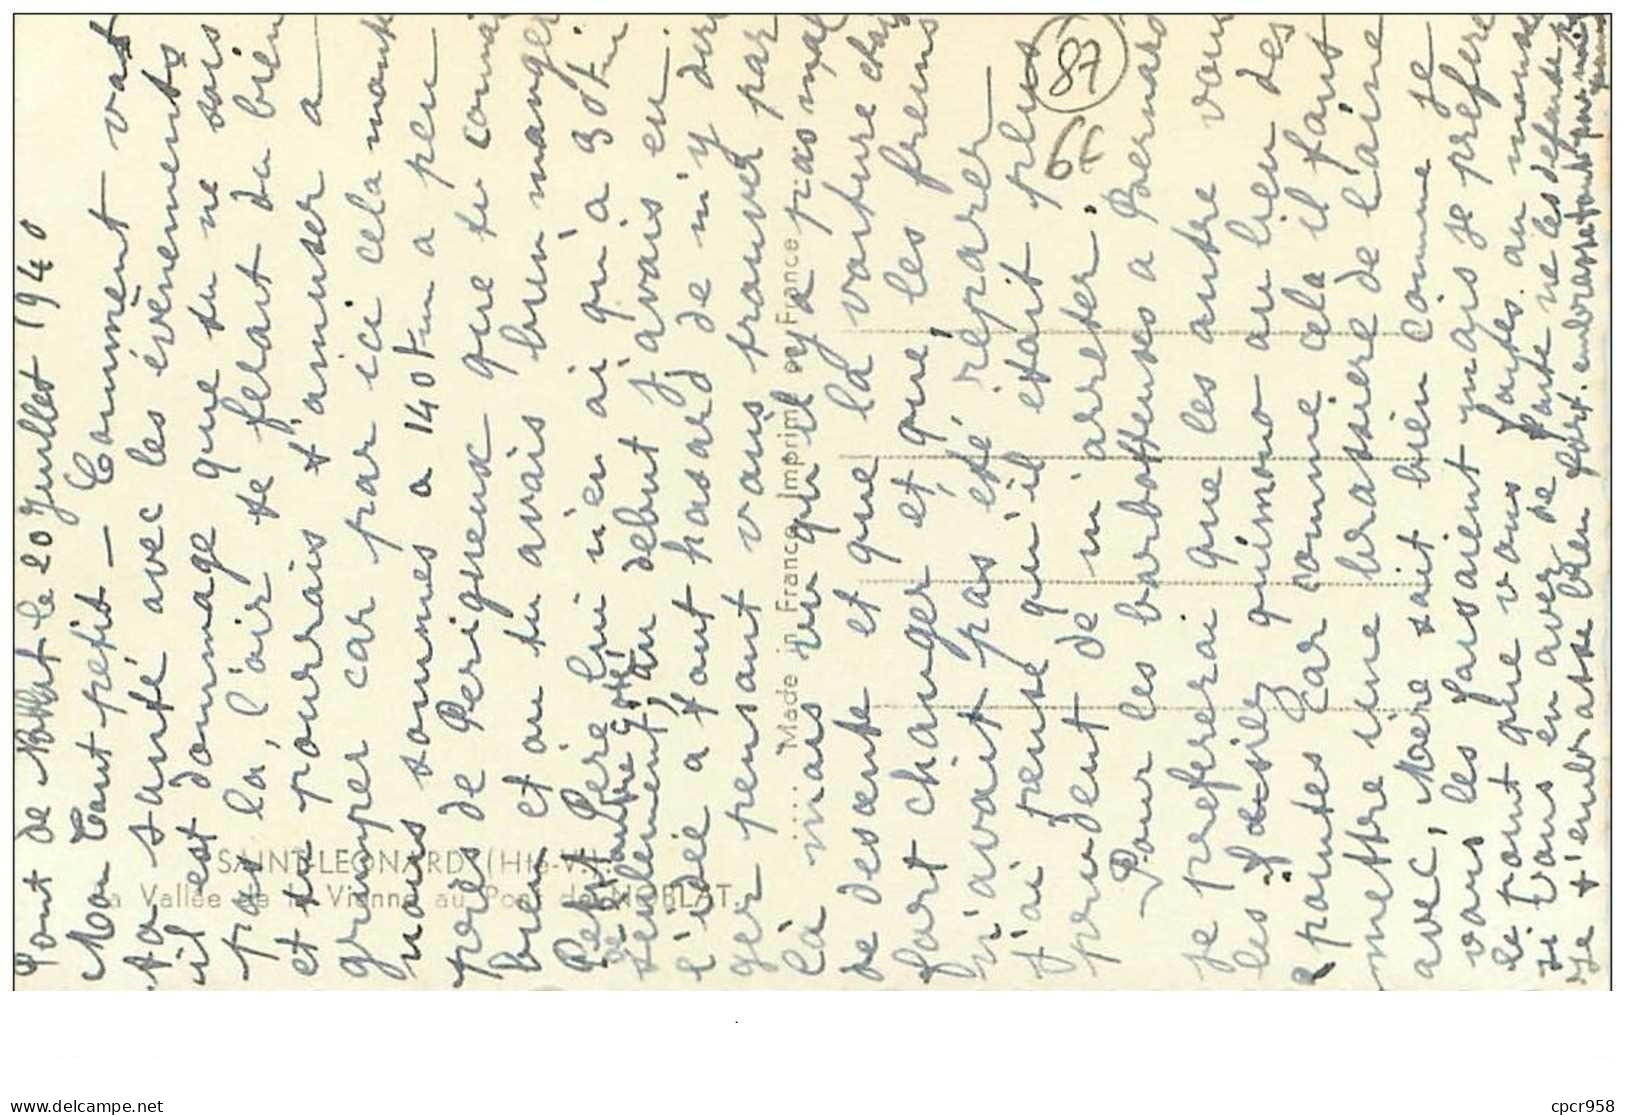 Pont de Noblat le 20 Juillet 1940
Mon tout petit — Comment vas
ta santé avec les évenements
il est dommage que tu ne sois
pas là, l'air te ferait du bien
et tu pourrais t'amuser a
grimper car par ici cela monte
nous sommes a 140 km a peu
pres de Perigueux que tu connai
bien et ou tu avais bien manger
Petit Père lui n'en ai qu'a 30 km
de l'autre coté
seulement, au debut j'avais eu
l'idée a tout hasard de m'y diri
ger pensant vous trouver par
là mais vu qu'il y a pas mal
de descente et que la voiture
fort changer et que les freins
n'avait pas été réparer
j'ai pensé qu'il était plus
prudent de m'arreter.
Pour les barboteuses a Bernard
je prefererai que les autre vous
les quimono au lieu des
epaules car comme cela il faut
mettre une brassiere de laine
avec, Mère sait bien comme je
vous les faisaient mais je prefere
le tout que vous faites au monde
si vous en avez de faite ne les defaite pas
Je t'embrasse bien fort. embrasse tout pour moi
87
66
SAINT-LEONARD (Hte-V.)
La Vallée de la Vienne au Pont de NOBLAT.
Made in France Imprimé en France
www.delcampe.net
cpcr958